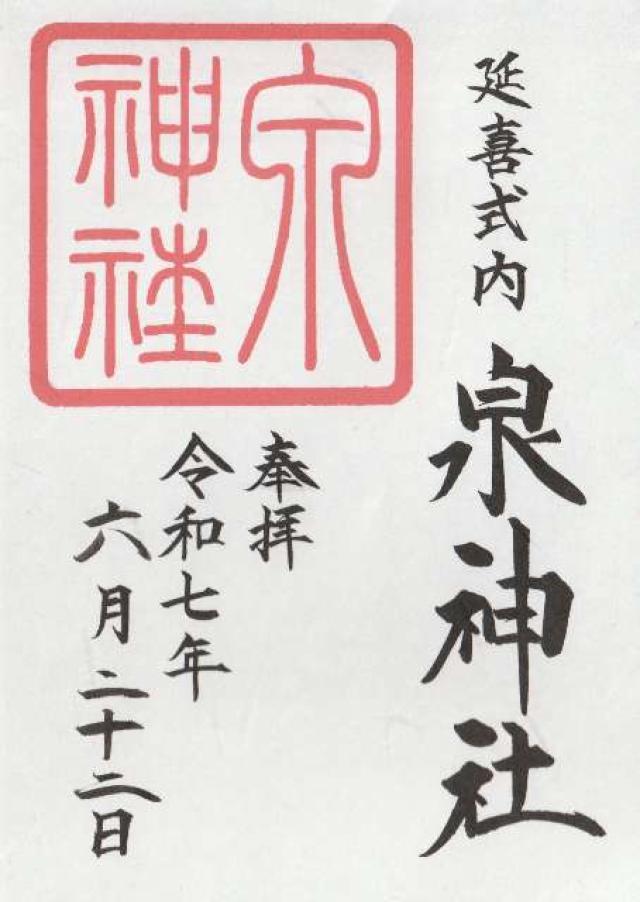 延喜式内
泉神社
奉拝
令和七年
六月二十二日
泉
神社